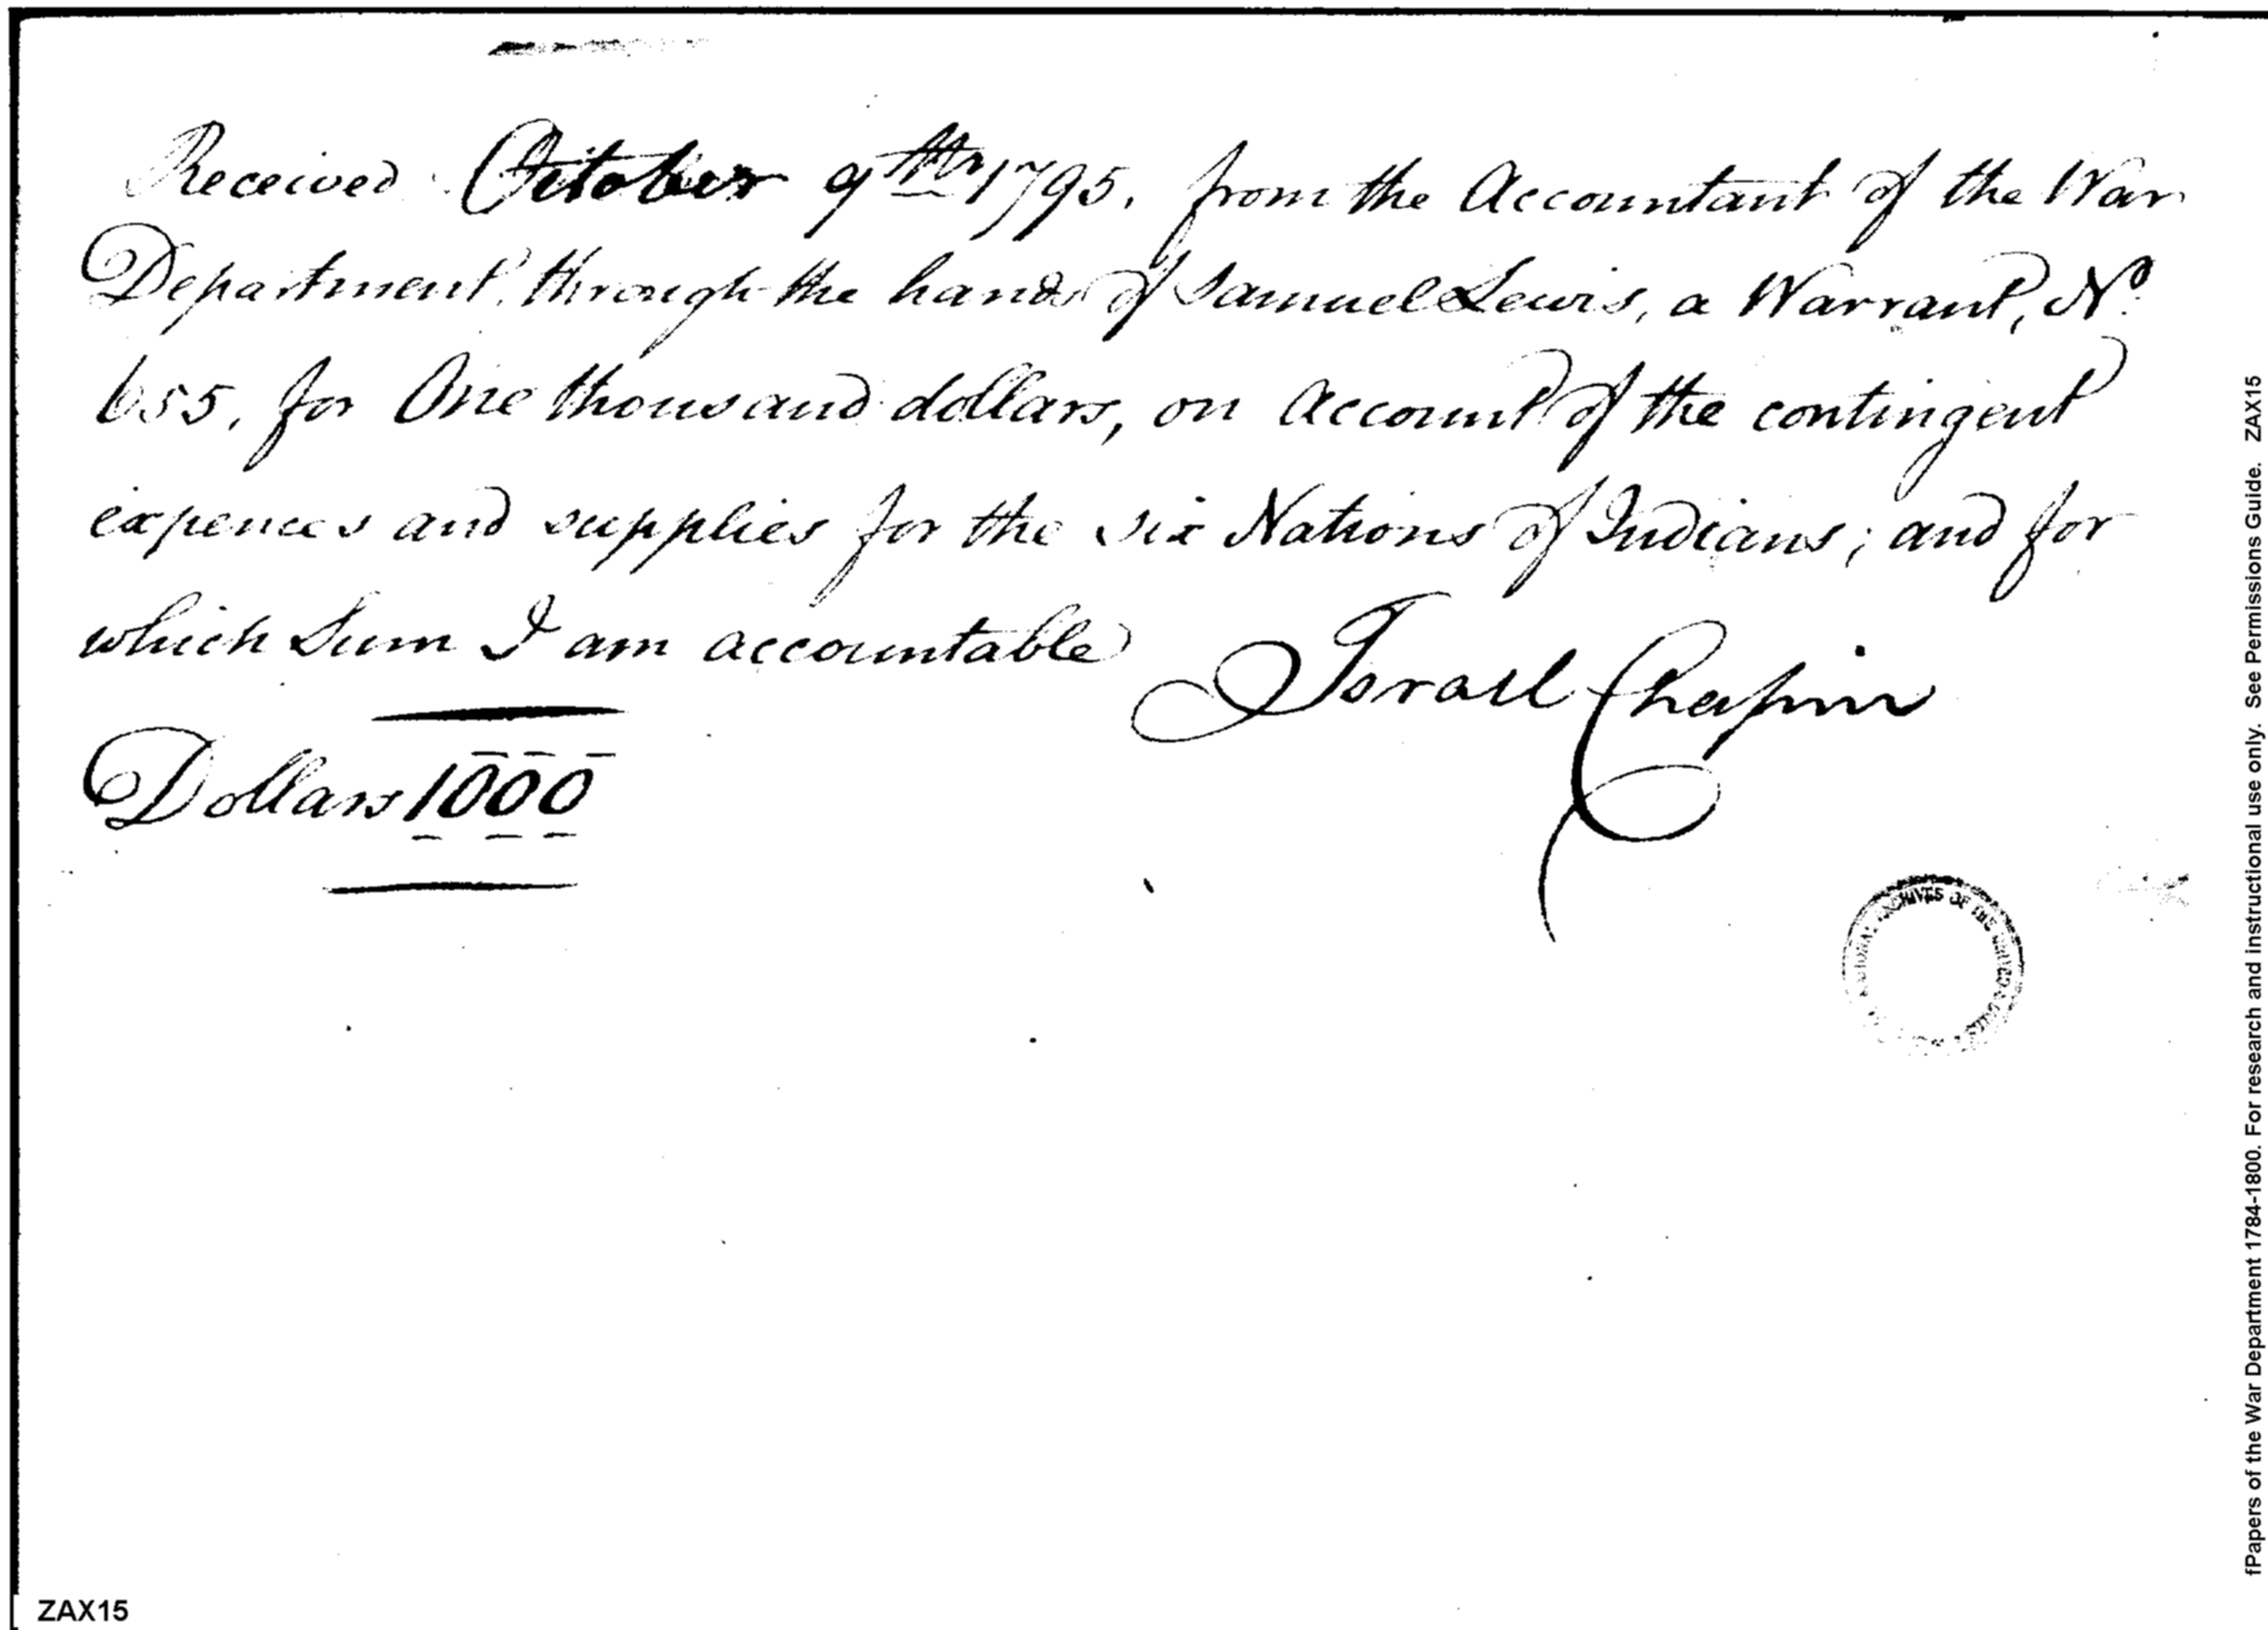 Received October 9th 1795, from the Accountant of the War
Department, through the hands of Samuel Lewis, a Warrant, No.
655, for One thousand dollars, on account of the contingent
expences and supplies for the six Nations of Indians; and for
which Sum I am accountable
Israel Chapin
Dollars 1000
ARCHIVES OF THE
ZAX15
fPapers of the War Department 1784-1800. For research and instructional use only. See Permissions Guide. ZAX15